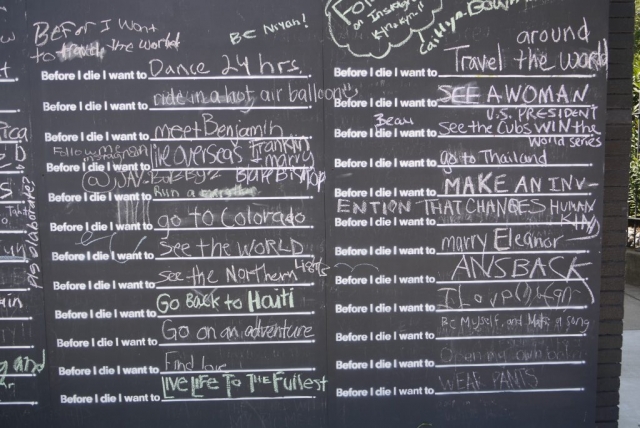 BEFOR I WONT
to travel the world
BE NIYAH!
Before I die I want to Dance 24 hrs.
Before I die I want to ride in a hot air balloon
Before I die I want to meet Benjamin
Franklin
Before I die I want to live overseas
marry
Before I die I want to Run a
Before I die I want to go to Colorado
Before I die I want to See the WORLD
Before I die I want to see the Northern Lights
Before I die I want to Go Back to Haiti
Before I die I want to Go on an adventure
Before I die I want to Find love
Before I die I want to LIVE LIFE TO THE FullesT
on Instagram
around
Before I die I want to Travel the world
Before I die I want to SEE A WOMAN
U.S. PRESIDENT
Before I die I want to See the Cubs WIN the
World series
Before I die I want to go to Thailand
Before I die I want to MAKE AN INV-
ENTION THAT CHANGES HUMAN
Before I die I want to marry Eleanor
Before I die I want to ANSBACK
Before I die I want to
Before I die I want to Be Myself, and Make a song
Before I die I want to open my own
Before I die I want to WEAR PANTS